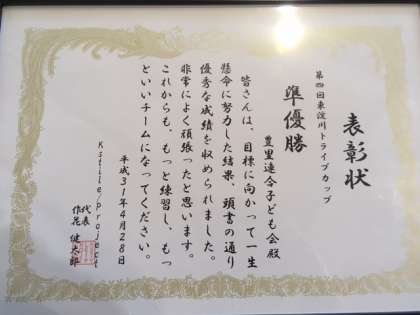 表彰状
第四回東淀川トライブカップ
準優勝
豊里連合子ども会殿
皆さんは、目標に向かって一生
懸命に努力した結果、頭書の通り
優秀な成績を収められました。
非常によく頑張ったと思います。
これからも、もっと練習し、もっ
といいチームになってください。
平成31年4月28日
Kstile/project
代表
作花 健太郎